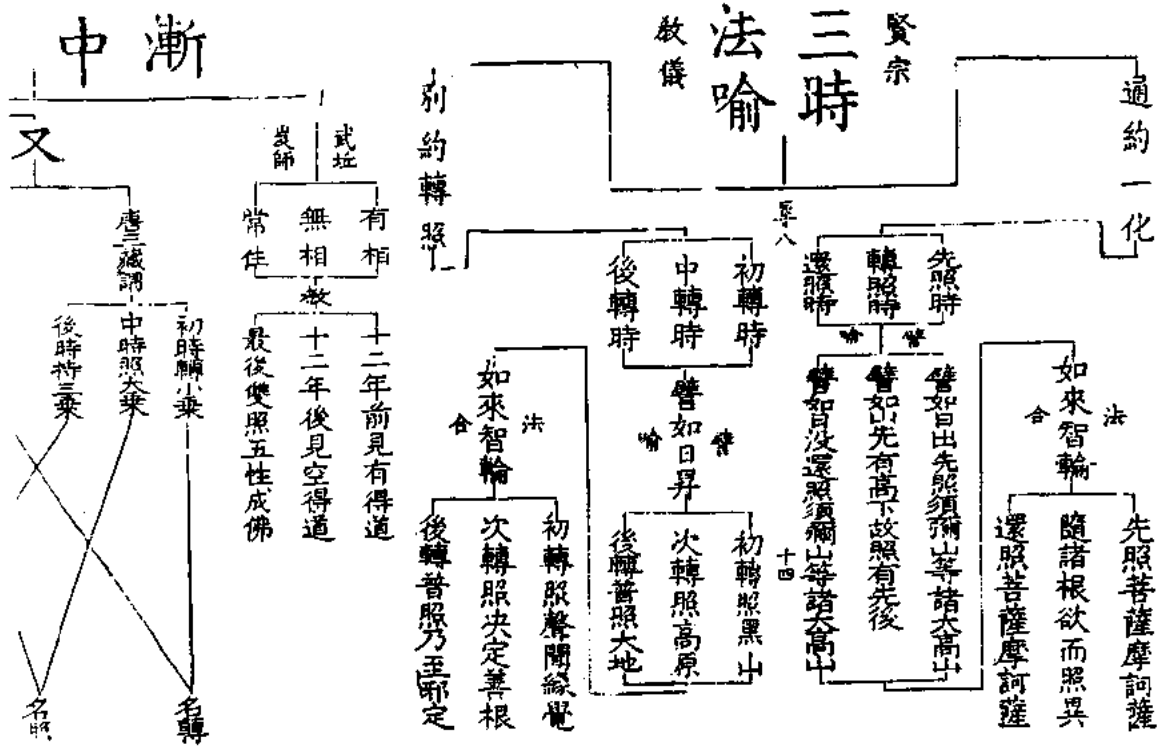 賢宗
三時
法喻
教儀
通約一化
先照時
轉照時
還照時
譬
喻
譬如日出先照須彌山等諸大高山
譬如山先有高下故照有先後
譬如日没還照須彌山等諸大高山
法
合
如來智輪
先照菩薩摩訶薩
隨諸根欲而照異
還照菩薩摩訶薩
十四
別約轉照
初轉時
中轉時
後轉時
譬
喻
譬如日昇
初轉照黑山
次轉照高原
後轉普照大地
法
合
如來智輪
初轉照聲聞緣覺
次轉照決定善根
後轉普照乃至邪定
漸中
武坵
岌師
有相
無相
常住
教
十二年前見有得道
十二年後見空得道
最後雙照五性成佛
又
唐三藏謂
初時轉小乘
中時照大乘
後時持三乘
名轉
名照